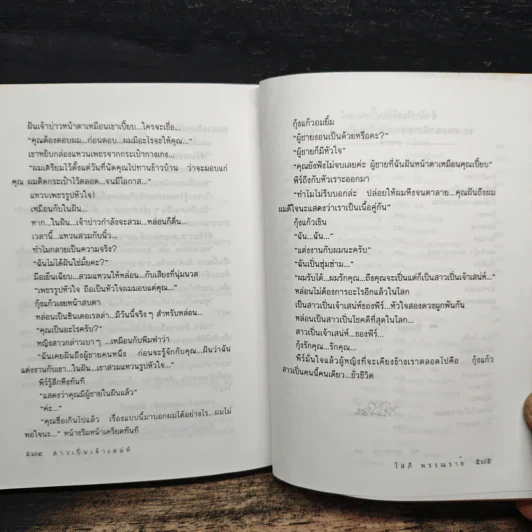 ฝันเจ้าบ่าวหน้าตาเหมือนเขาเปี๊ยบ...ใครจะเชื่อ...
"คุณต้องตอบผม...ก่อนตอบ...ผมมีอะไรจะให้คุณ..."
เขาหยิบกล่องแหวนเพชรจากกระเป๋ากางเกง...
"ผมเตรียมไว้ตั้งแต่วันที่นัดคุณไปทานข้าวบ้าน ว่าจะมอบแก่
คุณ ผมติดกระเป๋าไว้ตลอด...จนมีโอกาส..."
แหวนเพชรรูปหัวใจ!
เหมือนกับในฝัน...
หาก...ในฝัน...เจ้าบ่าวกำลังจะสวม...หล่อนก็ตื่น...
เวลานี้...แหวนสวมกับนิ้ว...
ทำไมกลายเป็นความจริง?
"ฉันไม่ได้ฝันใช่มั้ยคะ?"
มือเย็นเฉียบ...สวมแหวนให้หล่อน...กับเสียงที่นุ่มนวล
"เพชรรูปหัวใจ ถือเป็นหัวใจผมมอบแด่คุณ..."
กุ้งแก้วเงยหน้าสบตา
หล่อนเป็นซินเดอเรลล่า...มีวันนี้จริงๆ สำหรับหล่อน...
"คุณเป็นอะไรครับ?"
หญิงสาวกล่าวเบาๆ ...เหมือนกับพึมพำว่า
"ฉันเคยฝันถึงผู้ชายคนหนึ่ง ก่อนจะรู้จักกับคุณ...ฝันว่าฉัน
แต่งงานกับเขา...ในฝัน...เขาสวมแหวนรูปหัวใจ..."
พีร์รู้สึกหึงทันที
"แสดงว่าคุณมีผู้ชายในฝันแล้ว"
"ค่ะ..."
"คุณชื่อเกินไปแล้ว เรื่องแบบนี้มาบอกผมได้อย่างไร...ผมไม่
พอใจนะ..." หน้าขรึมหน้าเครียดทันที
๕๗๔ ดาวเป็นเจ้าเสน่ห์
กุ้งแก้วอมยิ้ม
"ผู้ชายงอนเป็นด้วยหรือคะ?"
"ผู้ชายก็มีหัวใจ"
"คุณยังฟังไม่จบเลยค่ะ ผู้ชายที่ฉันฝันหน้าตาเหมือนคุณเปี๊ยบ"
พีร์ถึงกับหัวเราะออกมา
"ทำไมไม่รีบบอกล่ะ ปล่อยให้ผมหึงจนตาลาย...คุณฝันถึงผม
ผมดีใจนะแสดงว่าเราเป็นเนื้อคู่กัน"
กุ้งแก้วเขิน
"ฉัน...ฉัน..."
"แต่งงานกับผมนะครับ"
"ฉันเป็นซุ่มซ่าม..."
"ผมรับได้...ผมรักคุณ...ถึงคุณจะเป็นแต่ก็เป็นสาวเป็นเจ้าเสน่ห์..."
หล่อนไม่ต้องการอะไรอีกแล้วในโลก
เป็นสาวเป็นเจ้าเสน่ห์ของพีร์...หัวใจสองดวงผูกพันกัน
หล่อนเป็นสาวเป็นโชคดีที่สุดในโลก...
สาวเป็นเจ้าเสน่ห์...ของพีร์...
กุ้งรักคุณ...รักคุณ...
พีร์มั่นใจแล้วผู้หญิงที่จะเคียงข้างเราตลอดไปคือ กุ้งแก้ว
สาวเป็นคนนี้คนเดียว...ชั่วชีวิต
โสภี พรรณราย ๕๗๕